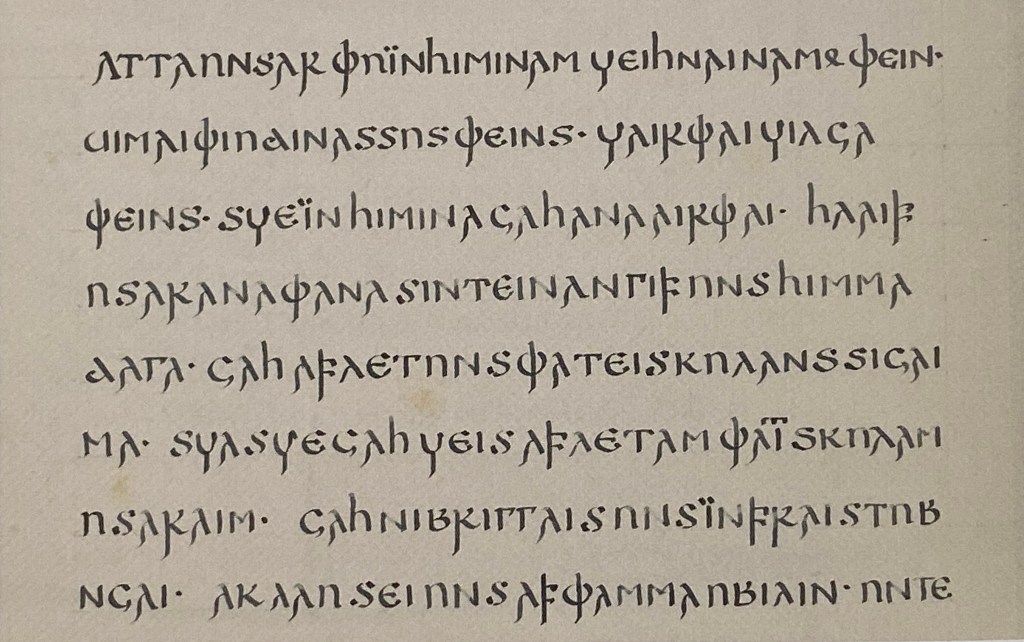 𐌰𐍄𐍄𐌰𐌿𐌽𐍃𐌰𐍂 𐌸𐌿𐌹̈𐌽𐌷𐌹𐌼𐌹𐌽𐌰𐌼 𐍅𐌴𐌹𐌷𐌽𐌰𐌹𐌽𐌰𐌼𐍉 𐌸𐌴𐌹𐌽·
𐌵𐌹𐌼𐌰𐌹𐌸𐌹𐌿𐌳𐌹𐌽𐌰𐍃𐍃𐌿𐍃𐌸𐌴𐌹𐌽𐍃· 𐍅𐌰𐌹𐍂𐌸𐌰𐌹𐍅𐌹𐌻𐌾𐌰
𐌸𐌴𐌹𐌽𐍃· 𐍃𐍅𐌴𐌹̈𐌽𐌷𐌹𐌼𐌹𐌽𐌰𐌾𐌰𐌷𐌰𐌽𐌰𐌰𐌹𐍂𐌸𐌰𐌹· 𐌷𐌻𐌰𐌹𐍆
𐌿𐍃𐌰𐍂𐌰𐌽𐌰𐌸𐌰𐌽𐌰𐍃𐌹𐌽𐍄𐌴𐌹𐌽𐌰𐌽𐌲𐌹𐍆𐌿𐌽𐍃𐌷𐌹𐌼𐌼𐌰
𐌳𐌰𐌲𐌰· 𐌾𐌰𐌷𐌰𐍆𐌻𐌴𐍄𐌿𐌽𐍃𐌸𐌰𐍄𐌴𐌹𐍃𐌺𐌿𐌻𐌰𐌽𐍃𐍃𐌹𐌾𐌰𐌹
𐌼𐌰· 𐍃𐍅𐌰𐍃𐍅𐌴𐌾𐌰𐌷𐍅𐌴𐌹𐍃𐌰𐍆𐌻𐌴𐍄𐌰𐌼𐌸𐌰𐌹̈𐍃𐌺𐌿𐌻𐌰𐌼
𐌿𐍃𐌰𐍂𐌰𐌹𐌼· 𐌾𐌰𐌷𐌽𐌹𐌱𐍂𐌹𐌲𐌲𐌰𐌹𐍃𐌿𐌽𐍃𐌹̈𐌽𐍆𐍂𐌰𐌹𐍃𐍄𐌿𐌱
𐌽𐌾𐌰𐌹· 𐌰𐌺𐌻𐌰𐌿𐍃𐌴𐌹𐌿𐌽𐍃𐌰𐍆𐌸𐌰𐌼𐌼𐌰𐌿𐌱𐌹𐌻𐌹𐌽· 𐌿𐌽𐍄𐌴